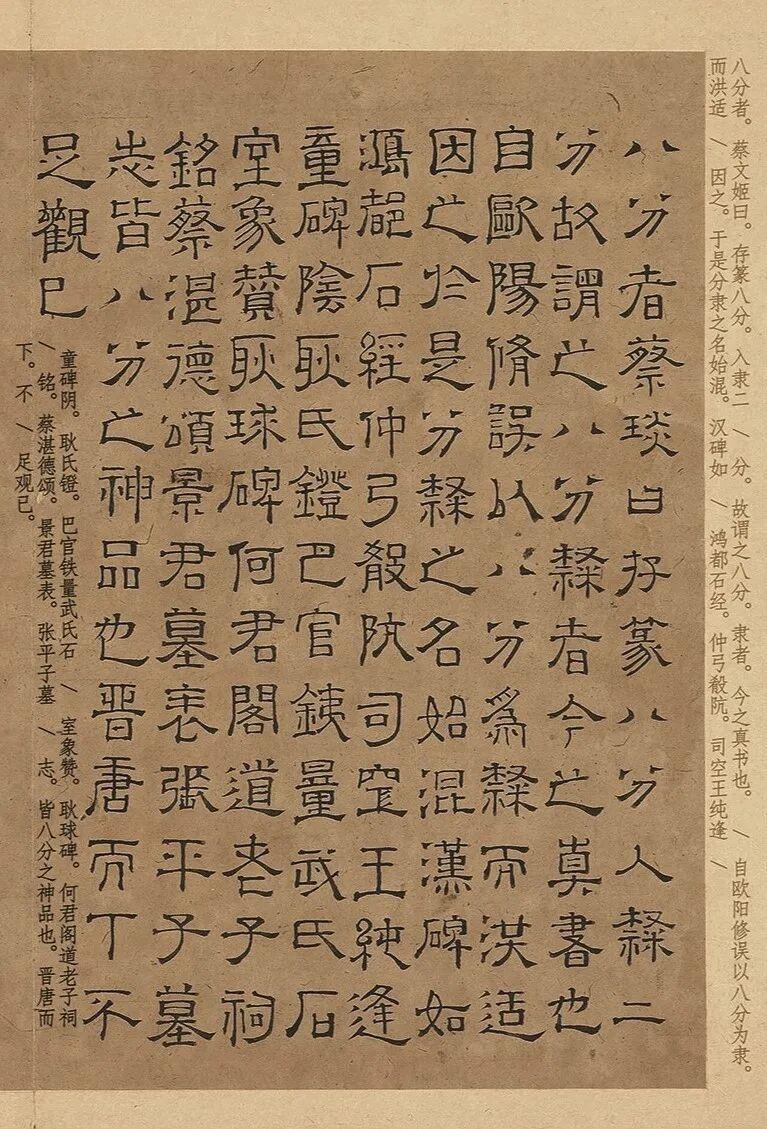 八分者。蔡文姬曰。存篆八分。入隶二 \ 分。故谓之八分。隶者。今之真书也。 \ 自欧阳修误以八分为隶。
而洪适 \ 因之。于是分隶之名始混。汉碑如 \ 鸿都石经。仲弓殽阬。司空王纯逢 \
八分者蔡琰曰存篆八分入隸二
分故謂之八分隸者今之真書也
自歐陽脩誤以八分為隸而洪适
因之於是分隸之名始混漢碑如
鴻都石經仲弓殽阬司空王純逢
童碑陰耿氏鐙巴官鐵量武氏石
室象贊耿球碑何君閣道老子祠
銘蔡湛德頌景君墓表張平子墓
志皆八分之神品也晉唐而丅不
足觀已
童碑阴。耿氏镫。巴官铁量武氏石 \ 室象赞。耿球碑。何君阁道老子祠
\ 铭。蔡湛德颂。景君墓表。张平子墓 \ 志。皆八分之神品也。晋唐而
下。不 \ 足观已。